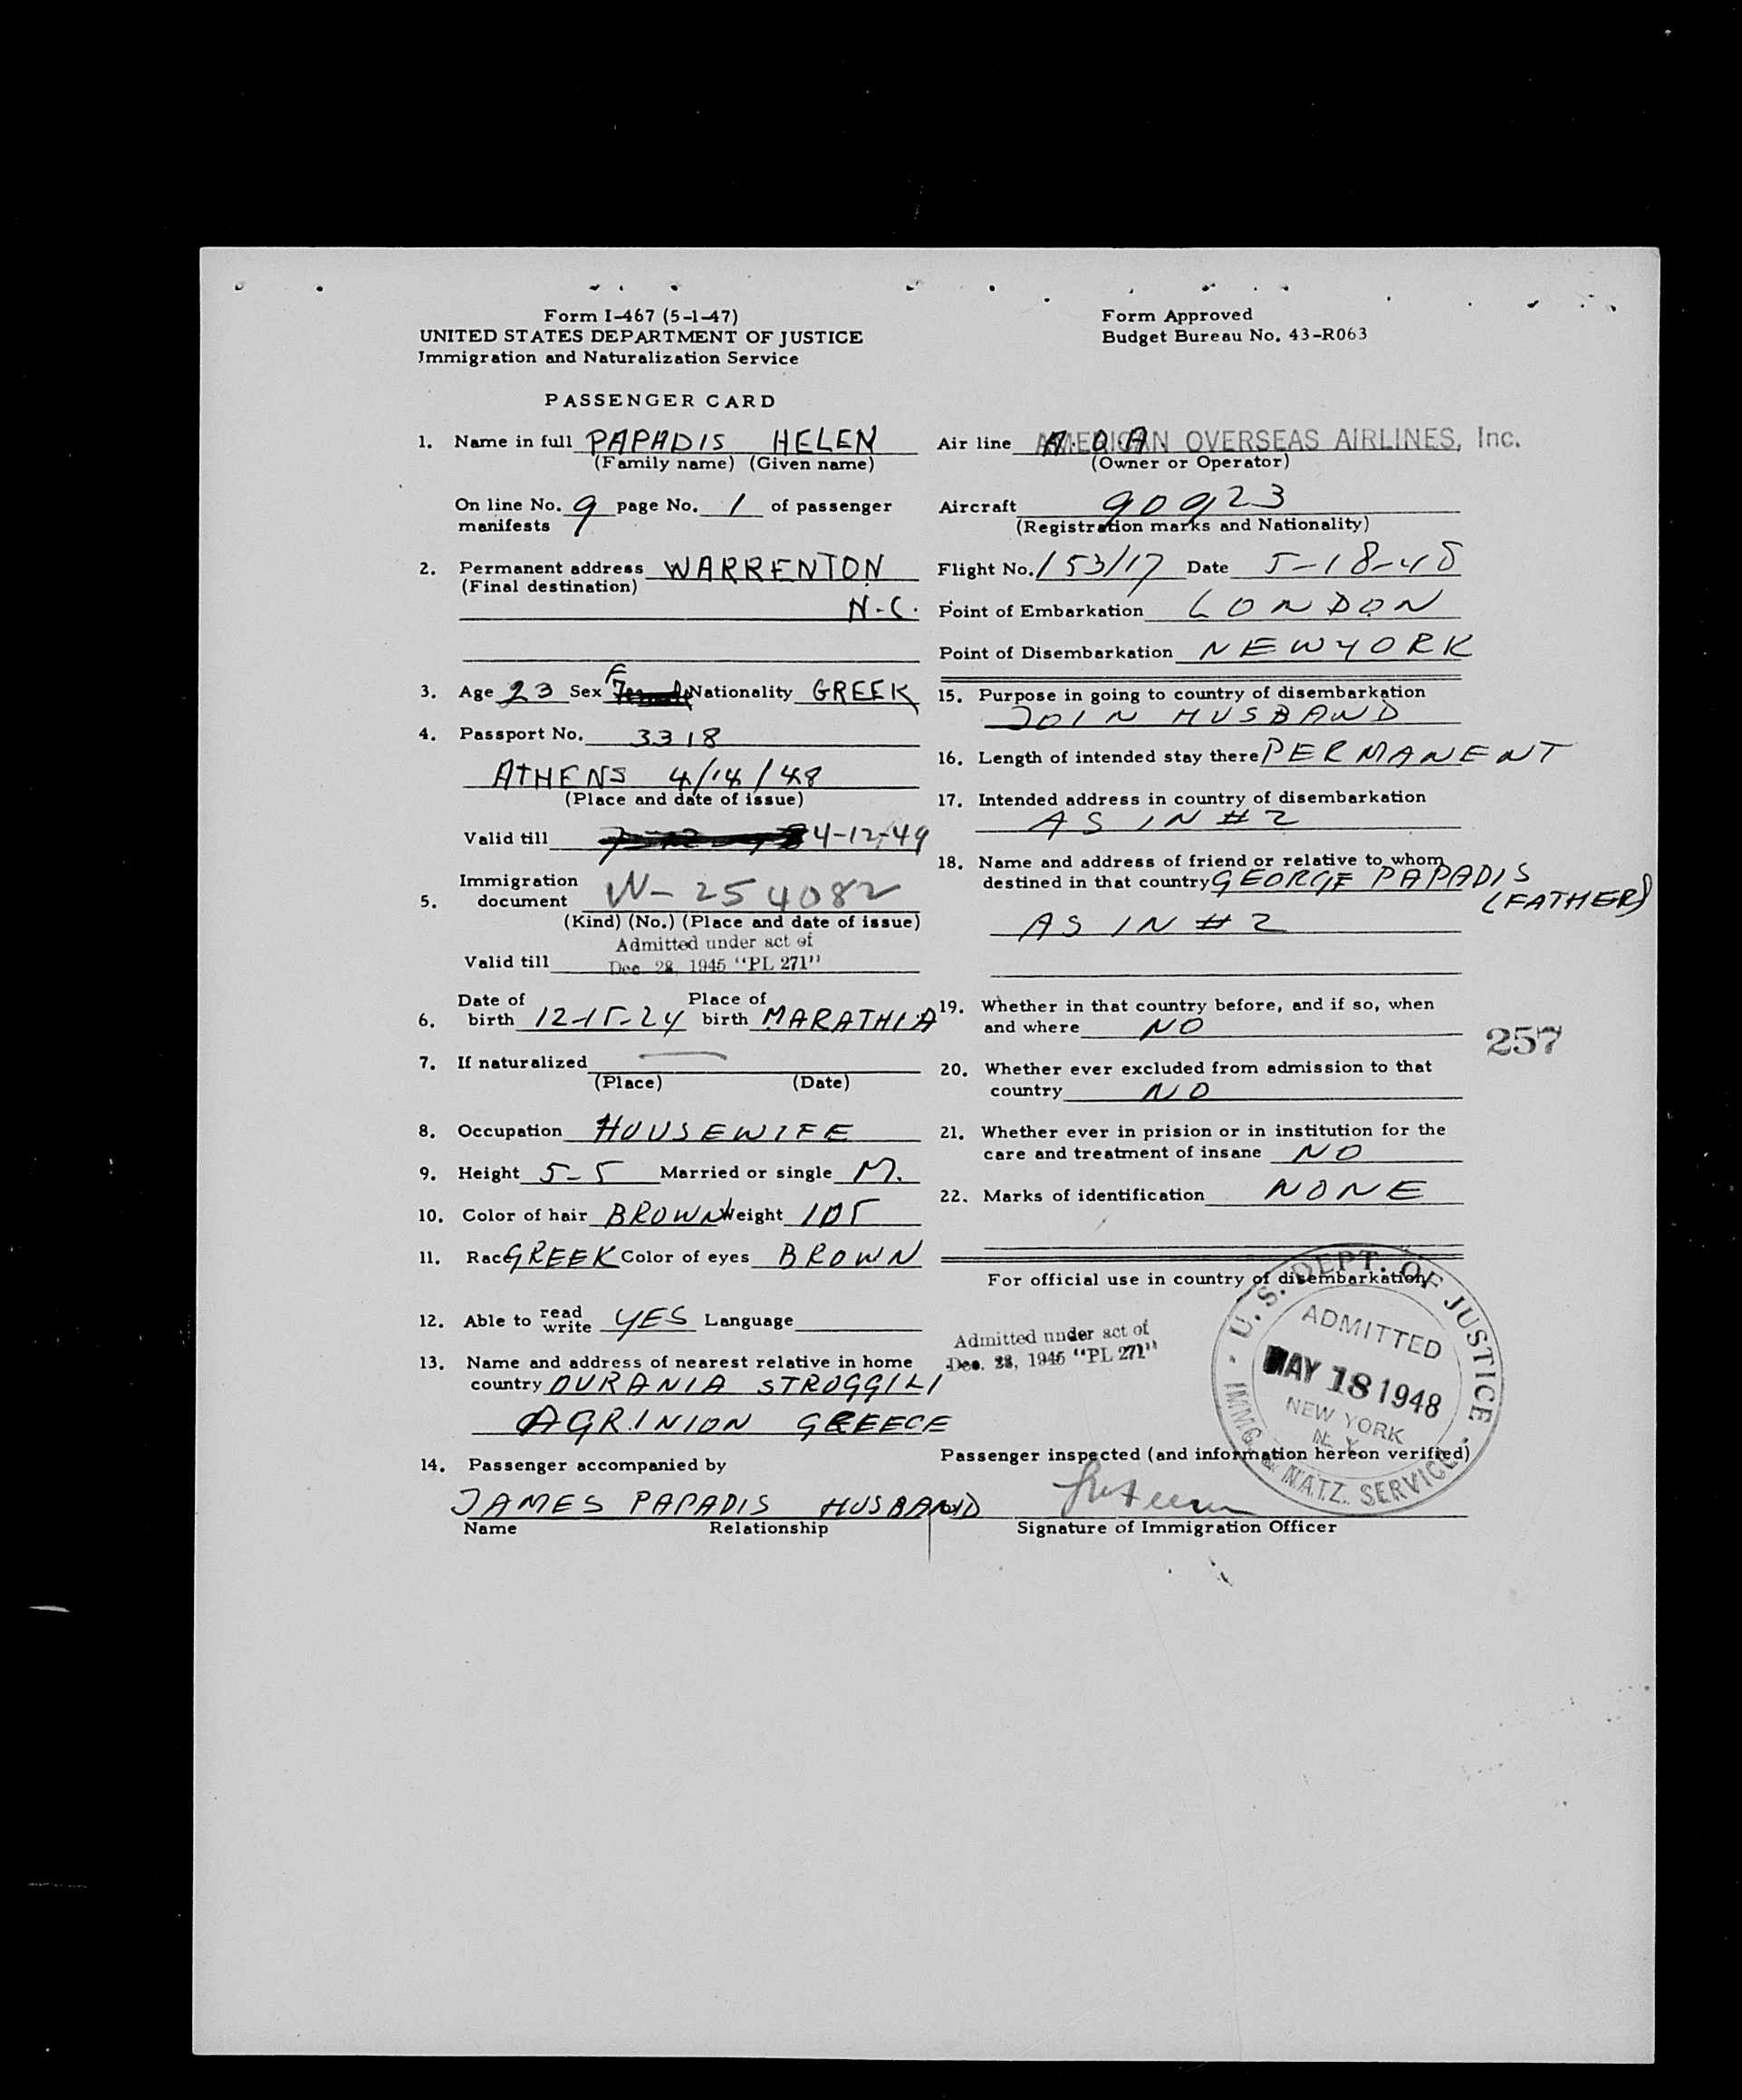 Form I-467 (5-1-47)
UNITED STATES DEPARTMENT OF JUSTICE
Immigration and Naturalization Service
Form Approved
Budget Bureau No. 43-R063
PASSENGER CARD
1. Name in full PAPADIS HELEN
(Family name) (Given name)
On line No. 9 page No. 1 of passenger
manifests
2. Permanent address WARRENTON
(Final destination)
N.C.
3. Age 23 Sex F Nationality GREEK
4. Passport No. 3318
ATHENS 4/14/48
(Place and date of issue)
Valid till 4-12-49
5. Immigration
document W-254082
(Kind) (No.) (Place and date of issue)
Admitted under act of
Valid till Dec. 28, 1945 "PL 271"
6. Date of birth 12-15-24 Place of birth MARATHIA
7. If naturalized —
(Place) (Date)
8. Occupation HOUSEWIFE
9. Height 5-5 Married or single M.
10. Color of hair BROWN Weight 105
11. Race GREEK Color of eyes BROWN
12. Able to read write YES Language
13. Name and address of nearest relative in home
country OURANIA STROGGILI
AGRINION GREECE
14. Passenger accompanied by
JAMES PAPADIS HUSBAND
Name Relationship
Air line A.O.A. AMERICAN OVERSEAS AIRLINES, Inc.
(Owner or Operator)
Aircraft 90923
(Registration marks and Nationality)
Flight No. 153/17 Date 5-18-48
Point of Embarkation LONDON
Point of Disembarkation NEWYORK
15. Purpose in going to country of disembarkation
JOIN HUSBAND
16. Length of intended stay there PERMANENT
17. Intended address in country of disembarkation
AS IN #2
18. Name and address of friend or relative to whom
destined in that country GEORGE PAPADIS
(FATHER)
AS IN #2
19. Whether in that country before, and if so, when
and where NO
257
20. Whether ever excluded from admission to that
country NO
21. Whether ever in prision or in institution for the
care and treatment of insane NO
22. Marks of identification NONE
For official use in country of disembarkation
Admitted under act of
Dec. 28, 1945 "PL 271"
U.S. DEPT. OF JUSTICE
ADMITTED
MAY 18 1948
NEW YORK
N.Y.
IMMG. & NATZ. SERVICE
Passenger inspected (and information hereon verified)
Signature of Immigration Officer